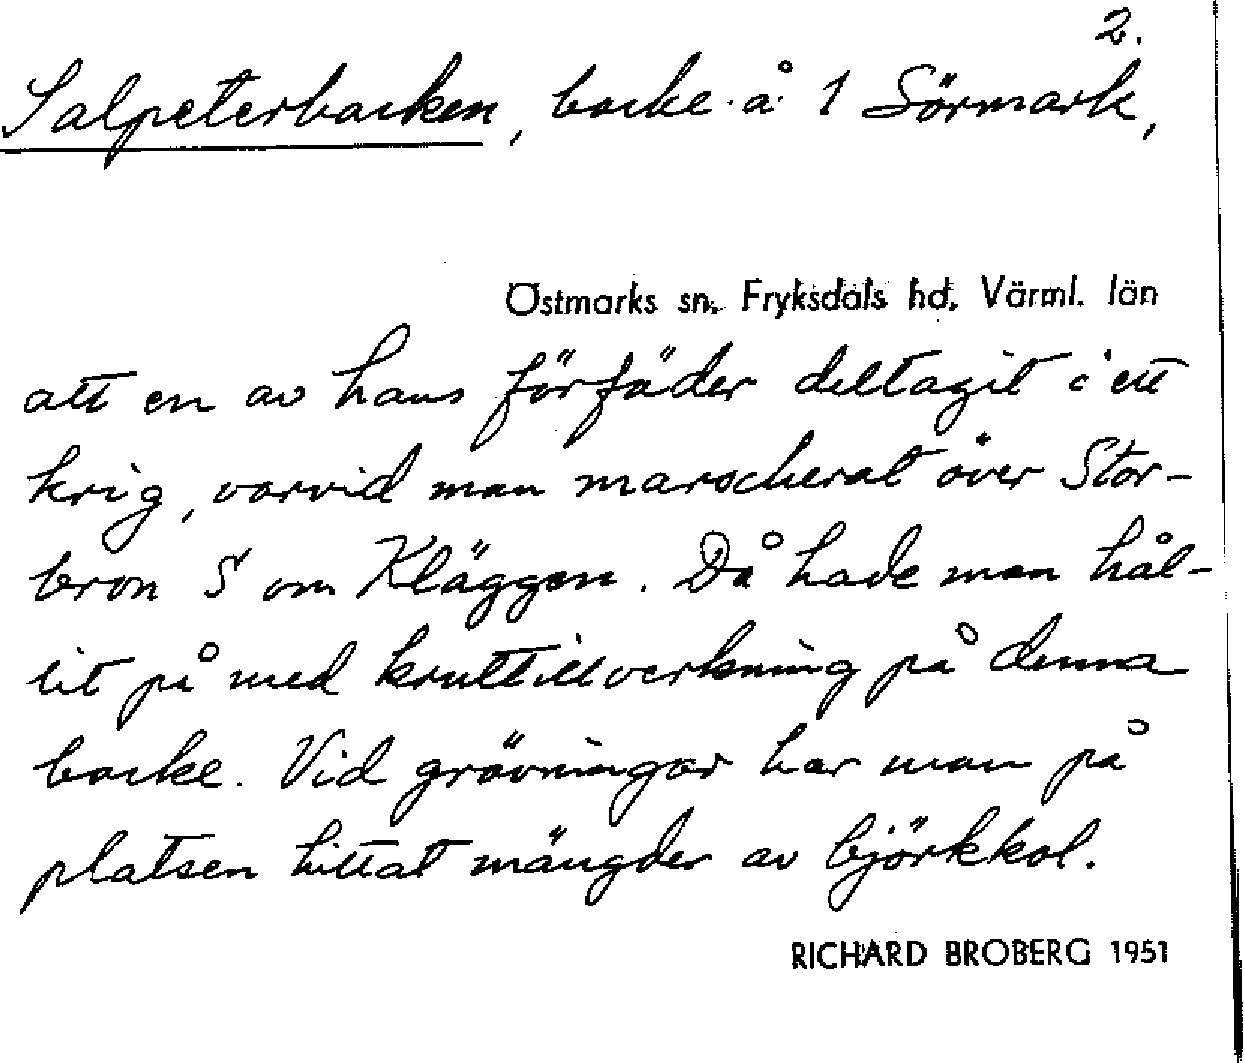 2.
Salpeterbacken, backe å 1 Sörmark,
Östmarks sn. Fryksdals hd. Värml. län
att en av hans förfäder deltagit i ett
krig, varvid man marscherat över Stor-
bron S om Kläggen. Då hade man hål-
lit på med kruttillverkning på denna
backe. Vid grävningar har man på
platsen hittat mängder av björkkol.
RICHARD BROBERG 1951